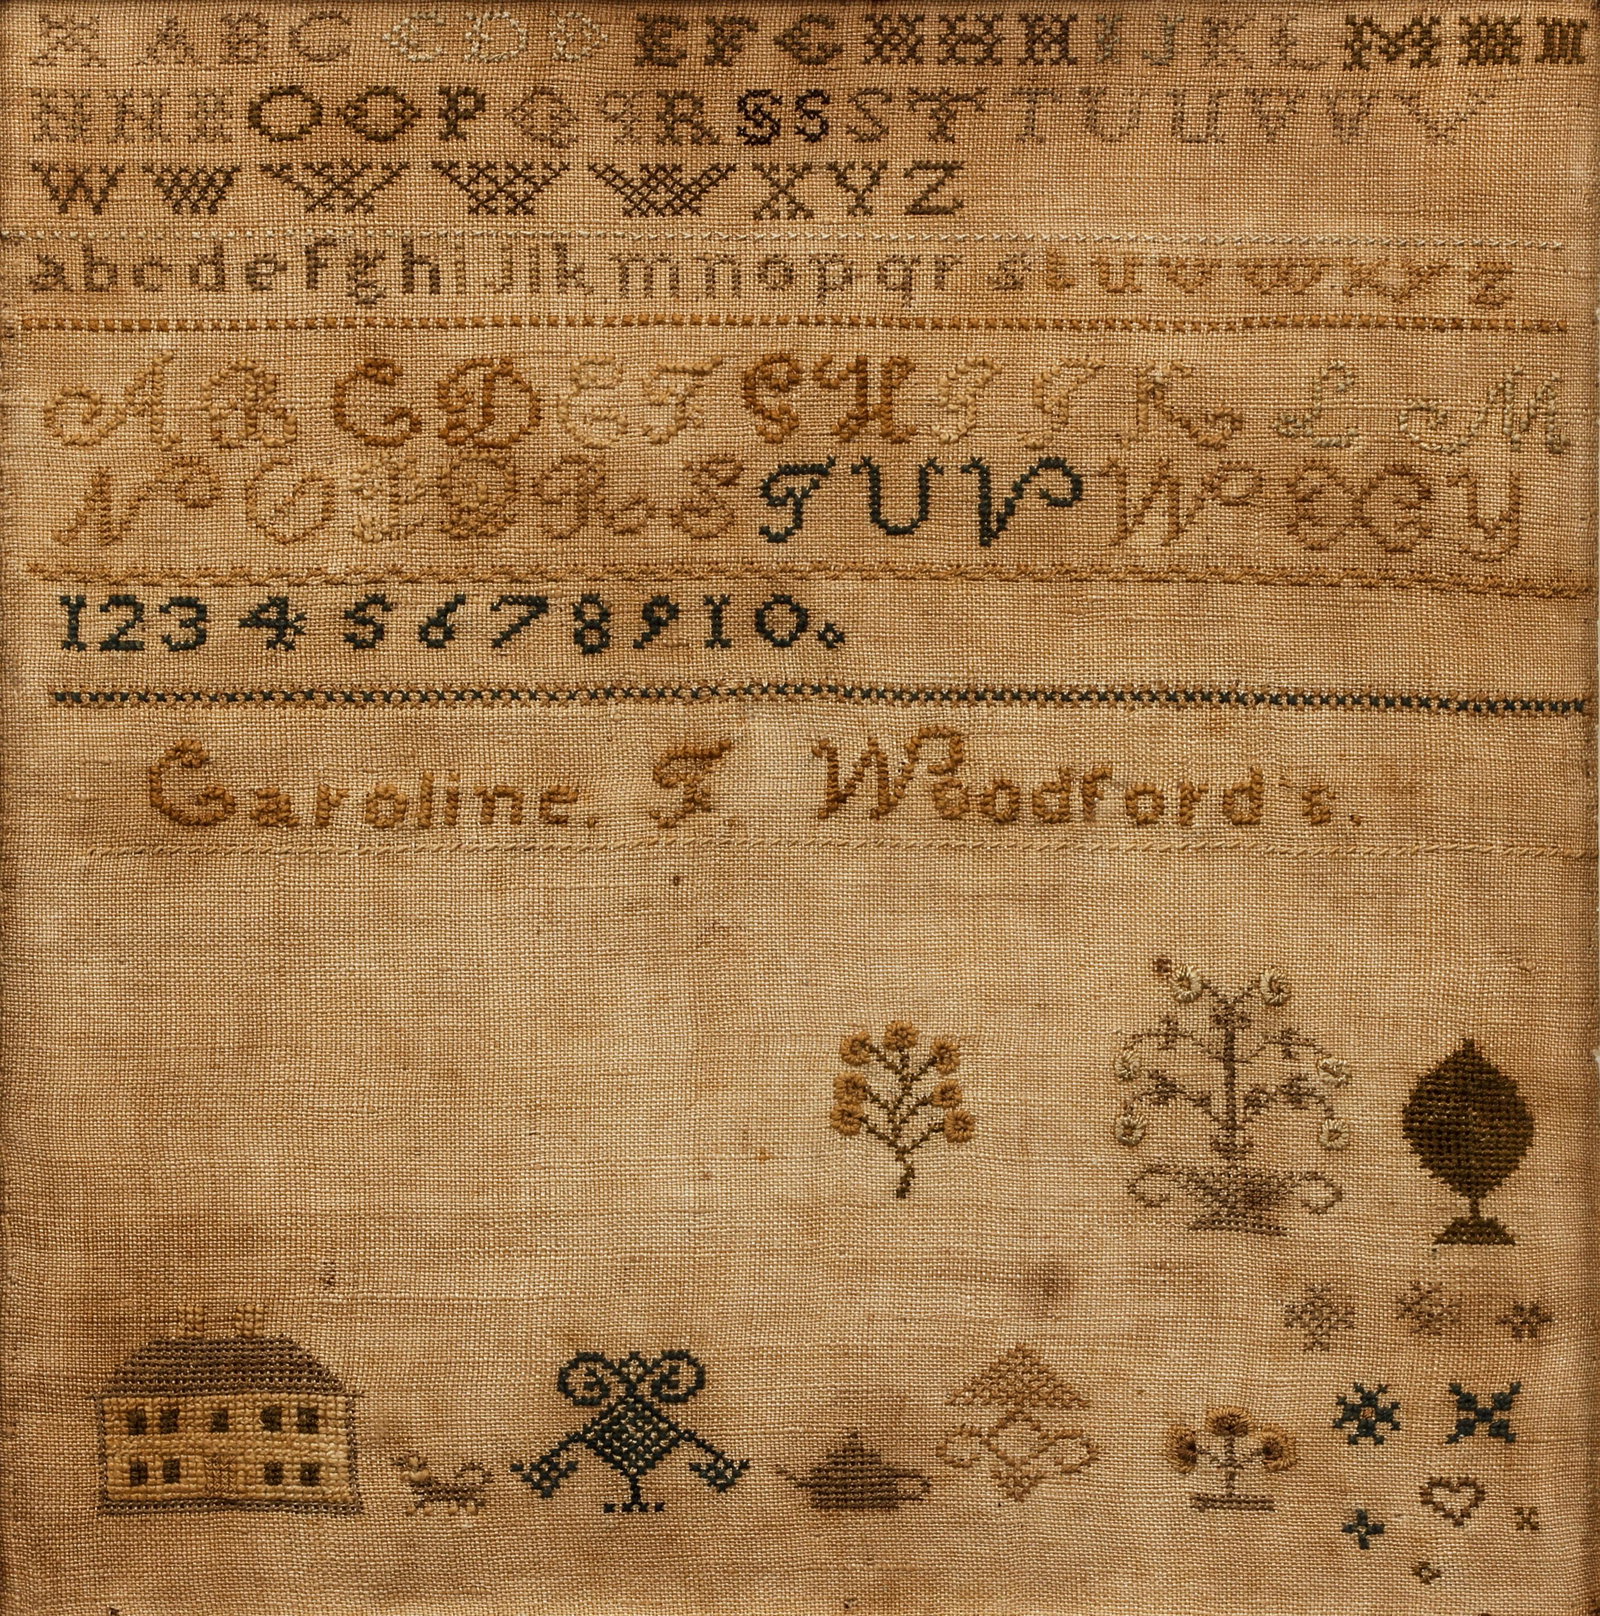 A A B C C D D E F G H H H I J K L M M M
N N P O O P Q q R S S S T T U U V V V
W W W W W X Y Z
a b c d e f g h i j l k m n o p q r s t u v w x y z
A B C D E F G H I J K L M
N O P Q R S T U V W X Y
1 2 3 4 5 6 7 8 9 1 0.
Caroline. F. Woodford's.